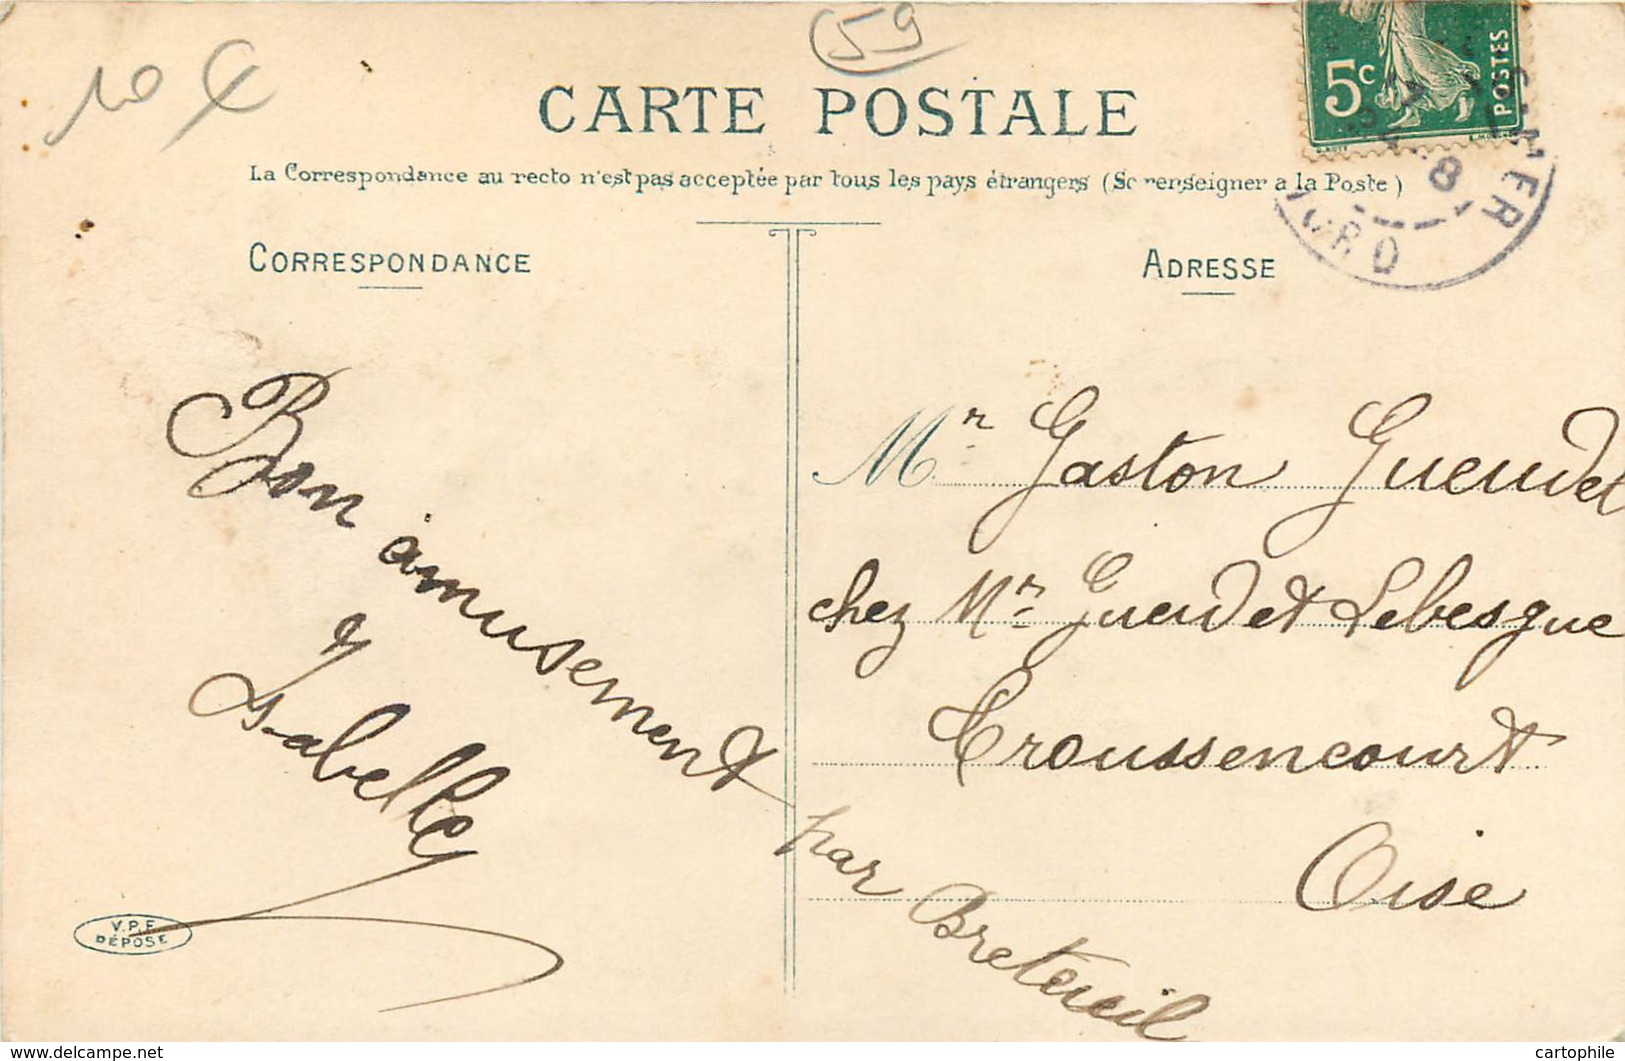 10 €
59
CARTE POSTALE
La Correspondance au recto n'est pas acceptée par tous les pays étrangers (Se renseigner a la Poste)
5c
POSTES
8
NORD
CORRESPONDANCE
ADRESSE
Bon amusement
Isabelle
Mr Gaston Gueudet
chez Mr Gueudet Lebesgue
Troussencourt
par Breteuil
Oise
V.P.F.
DÉPOSE
delcampe.net
cartophile